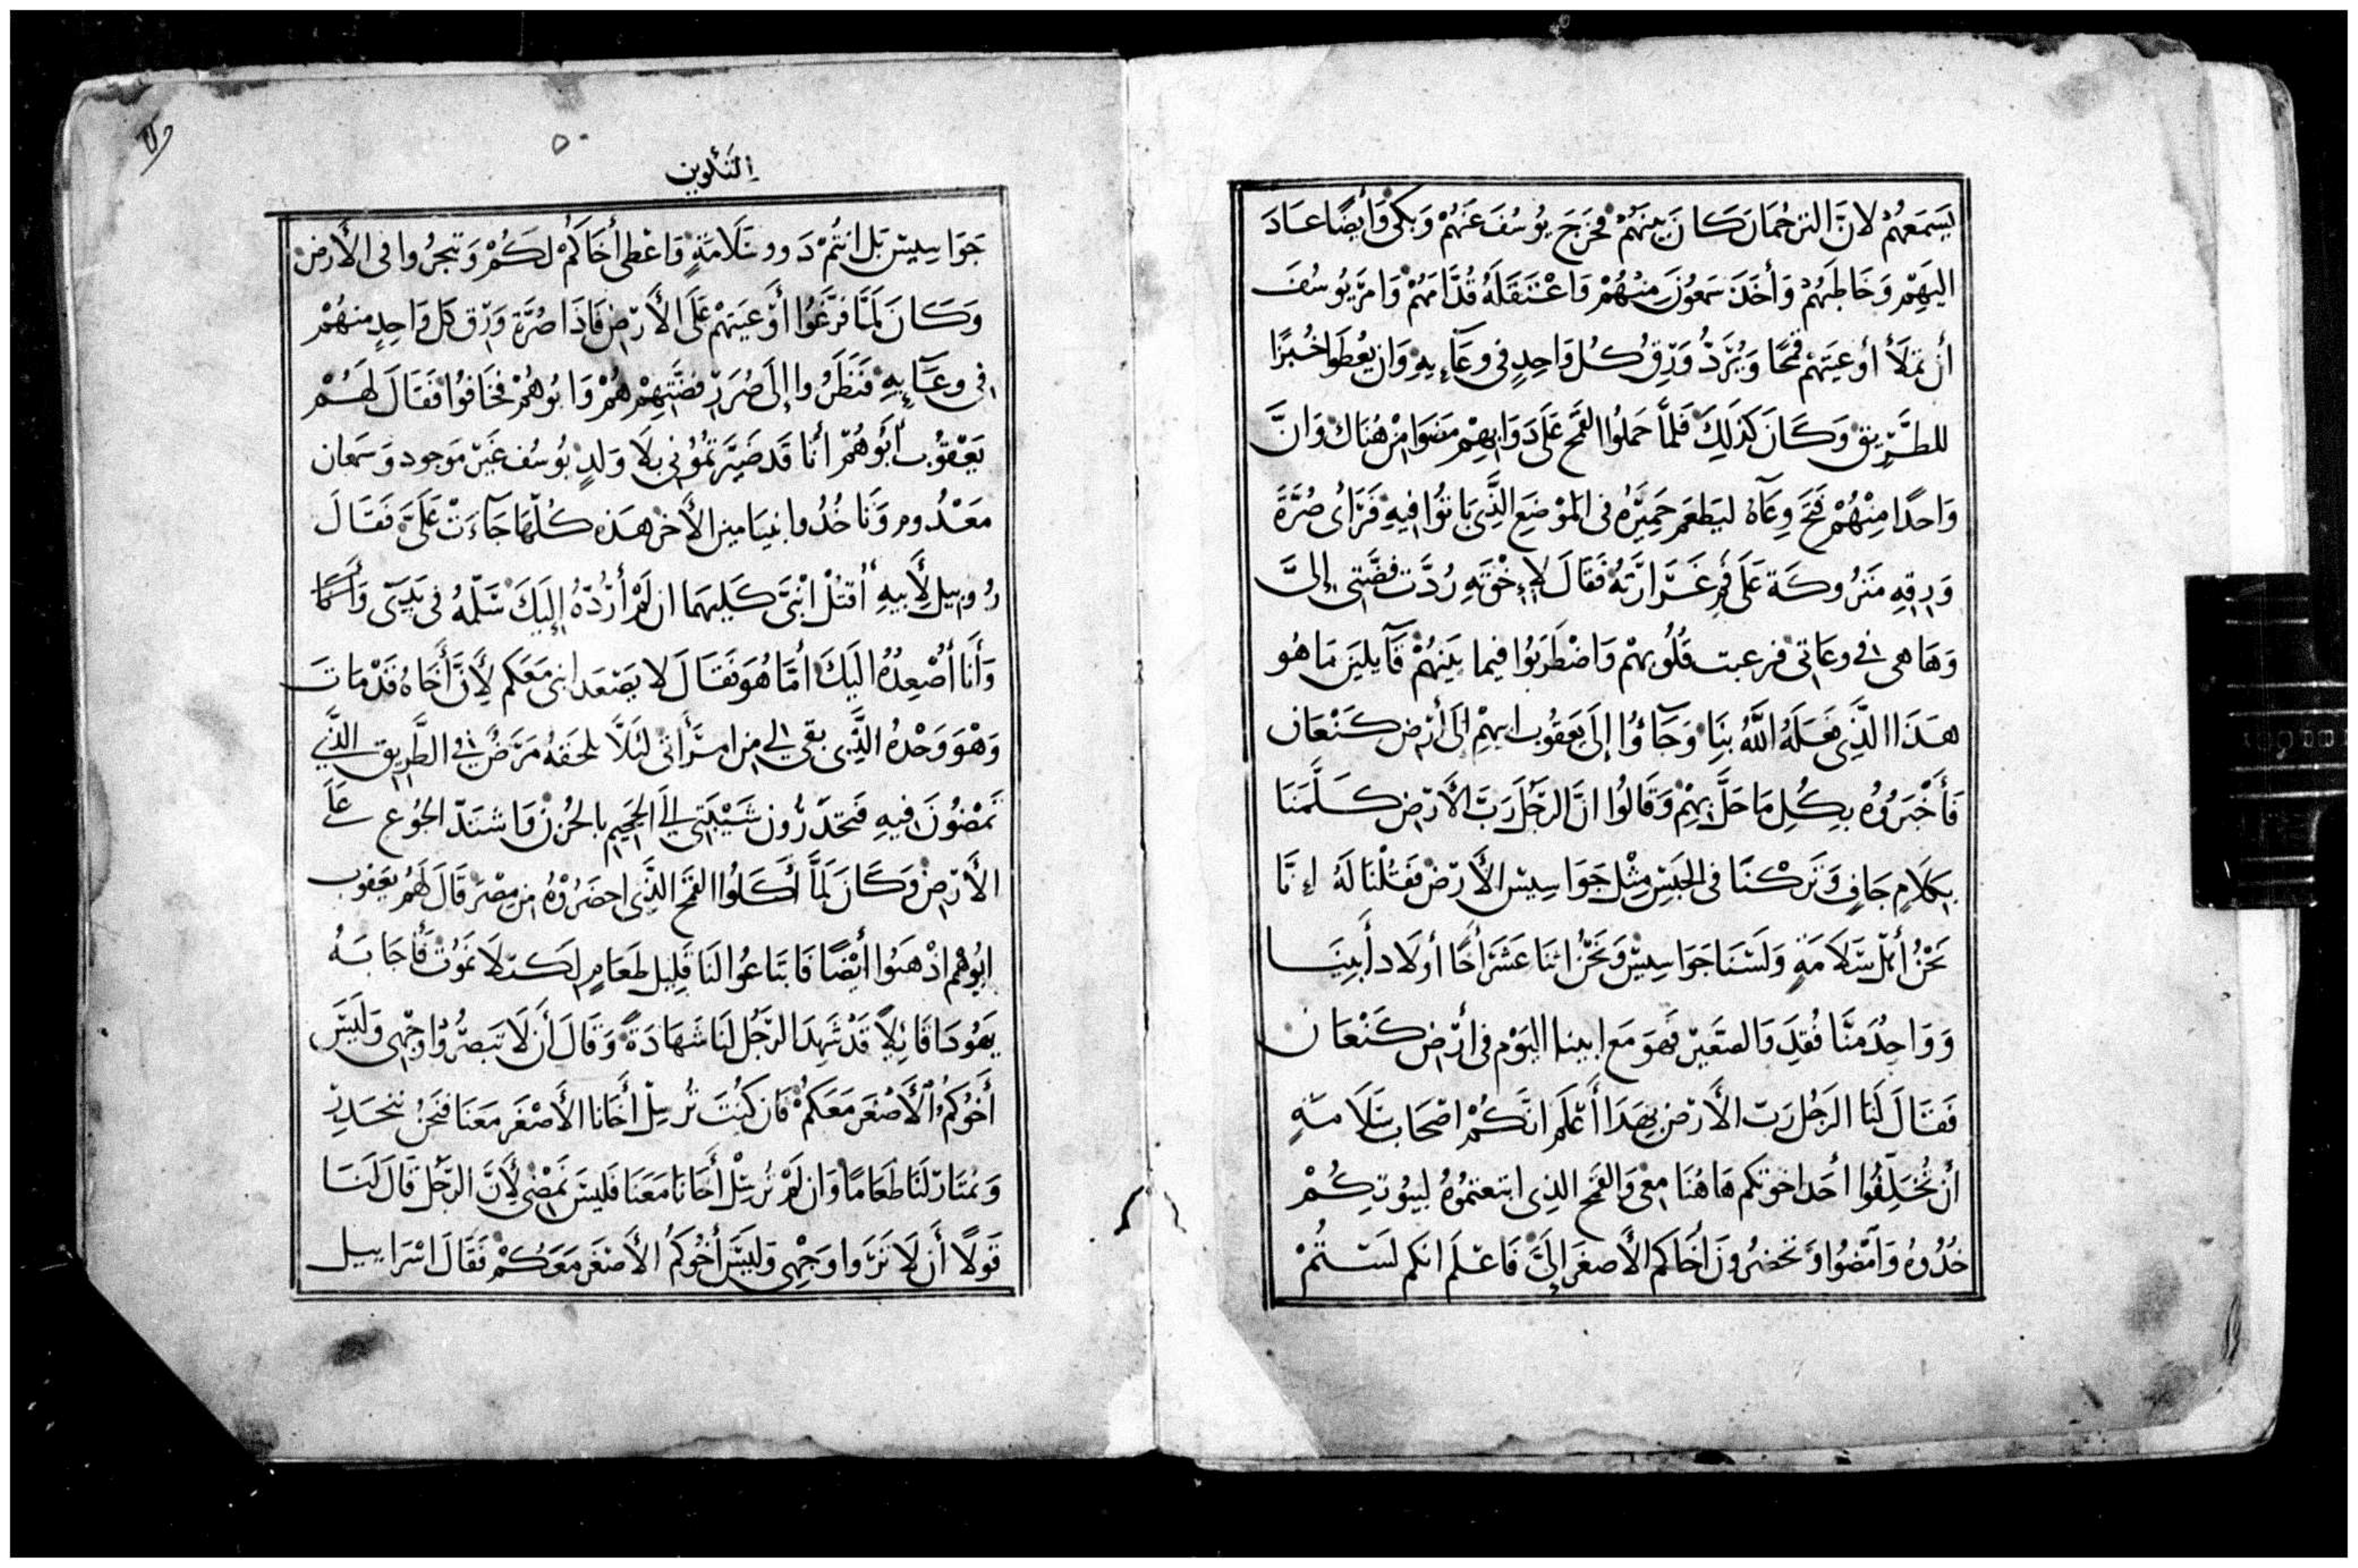 يَسْمَعُهُمْ لِانَّ التَرجُمَانَ كَانَ بَينَهُمْ فخَرَجَ يُوسُفَ عَنهُمْ وَبَكَى وَأَيضًا عَادَ
اليَهِمْ وَخَاطَبَهُمْ وَأَخَذَ سَمعُونَ مِنْهُمْ وَاعْتَقَلَهُ قُدَّامَهُمْ وَامَرَ يوسُفَ
أن تملَأ أوعيَتَهُمْ قمْحًا وَيُرَدُّ وَرِق كُل وَاحِدٍ فى وعَآءِيهِ وَان يُعطَوا خُبزًا
للطَّرِيق وَكَانَ كَذلِكَ فَلمَّا حَملوُا القمح عَلَى دَوَابهِمْ مضَوا مِنْ هُنَاك وَانَّ
وَاحدًا مِنْهُمْ فَتح وِعَآهُ ليَطعم حَمِيرَهُ فى المَوضع الذَّى بَاتُوا فيهِ فَرَاى صُرَّةَ
وَرِقِهِ مَتروكَة عَلَى فَمِ غَرَارَتهُ فقَالَ لإِخْوَتِهِ رُدَّت فضَّتى إلىَّ
وَهَا هى في وعَاتى فرعبت قلُوبهمْ وَاضْطَرَبُوا فيما بَينَهُمْ قَآيلينَ مَا هُو
هَذَا الذَّى فعَلَهُ اللَّهُ بنَا وَجَآؤُا إلىَ يَعقوُب ابيهِمْ إلى أرْض كَنْعَان
فَأَخْبَرُوُه بِكُلِ مَا حَلَّ بهِمْ وَقَالُوا انَّ الرَجُلَ رَبَّ الأَرْض كَلَّمَنَا
بِكَلَامٍ جَافٍ وَتَركْنَا فى الحَبْس مِثْل جَوَاسِيسْ الأَرْض فَقُلْنَا لَهُ إنَّا
نَحْنُ أهْل سَلَامَةٍ وَلَسْنَا جَوَاسِيسْ وَنَحْنُ اثنَا عَشَر أَخًا أولَاد أَبِينَا
وَوَاحِدُ مَنَّا فُقِدَ وَالصَغيرْ فَهوَ مَع ابينا اليَوْم فى أرْض كَنْعَان
فقَالَ لَنا الرَجُل رَبّ الأَرْض بهَذا أَعْلَم انَّكُمْ اصْحَاب سَلَامَةٍ
أن تُخَلِّفُوا أحَد اخوَتكم هَاهُنَا معى وَالقمح الذِى ابتَعتموُهُ لبيُوتكُمْ
خُذُوهُ وَامْضُوا وَتحضرُونَ أخَاكم الأَصْغَر إلىَّ فَاعْلَم انكم لَسْتُمْ
٥٠
التكوين
جَوَاسِيسْ بَل انتُمْ ذَوو سَلَامَةٍ وَاعْطى أخَاكُمْ لَكُمْ وَتتجرُوا فى الأَرض
وَكَانَ لَمَّا فَرَّغوُا أوْعيَتهمْ عَلَى الأَرْض فَاذَا صُرَّة وَرِق كل وَاحِدٍ منهُمْ
فى وعَآيِهِ فنَظَرُوا إلَى صُرَرْ فضَّتهِمْ هُمْ وَابُوهُمْ فخَافوُا فقَالَ لَهُمْ
يَعْقوُب أَبُوهُمْ أنا قَد صَيَّرتُمُوُنى بلَا وَلدٍ يوُسُف غَيْر مَوجود وَسَمعان
مَعْدُوم وَتَاخُذُوا بنيَامين الأَخر هَذه كُلّهَا جَآءَتْ عَلَىَّ فَقَالَ
رُوبيل لأَبيهِ أُقتُلْ ابْنَىَّ كَليهمَا ان لَمْ أَرُدّهُ إلَيكَ سَلّمهُ فى يَدِىّ
وَأنا أُصْعِدُهُ اليَكَ أمَّا هُوَ فقَالَ لا يَصْعَد ابنى مَعَكم لأَنَّ أَخَاهُ قَدْ مَاتَ
وَهْوَ وَحْدهُ الذَّى بَقى لي من امرَأتى لئَلاَّ يلحَقهُ مَرَضُ في الطَّريق الذَّي
تَمْضوُنَ فيهِ فَتحَدِّرُون شَيْبَتى إلَى الجَحِيم بالحُزنْ وَاشتَدّ الجُوع عَلَى
الأَرْض وَكَانَ لَمَّا أَكَلُوا القمح الذَّى احضَرُوْهُ من مِصْرَ قَالَ لَهُم يَعقوب
ابُوهُم اذْهَبُوا أيْضًا فَابتَاعوُا لَنَا قَلِيل طَعَامٍ لكىْ لَا نَمُوُتْ فَأَجَابَهُ
يَهُودَا قَائِلاً قَدْ شَهِدَ الرَجُل لنَا شَهَادَةً وَقَالَ أن لَا تبَصُرُوا وَجْهى وَلَيْسَ
أَخُوُكمُ الأَصْغَر مَعَكمُْ فَان كنْتَ تُرْسِلْ أخَانا الأَصْغَر مَعَنَا فنَحْنُ نَنحَدِرْ
وَنمْتَارْ لَنَا طَعَامًا وَان لَمْ تُرْسِلْ أَخَانَا مَعَنَا فَليسَ نَمْضى لأَنَّ الرَجُل قَالَ لَنَا
قَولاً أَن لَا تَرَوا وَجْهى وَليَسَ أَخُوكمُ الأَصْغَر مَعَكُمْ فَقَالَ اسْرَاييل